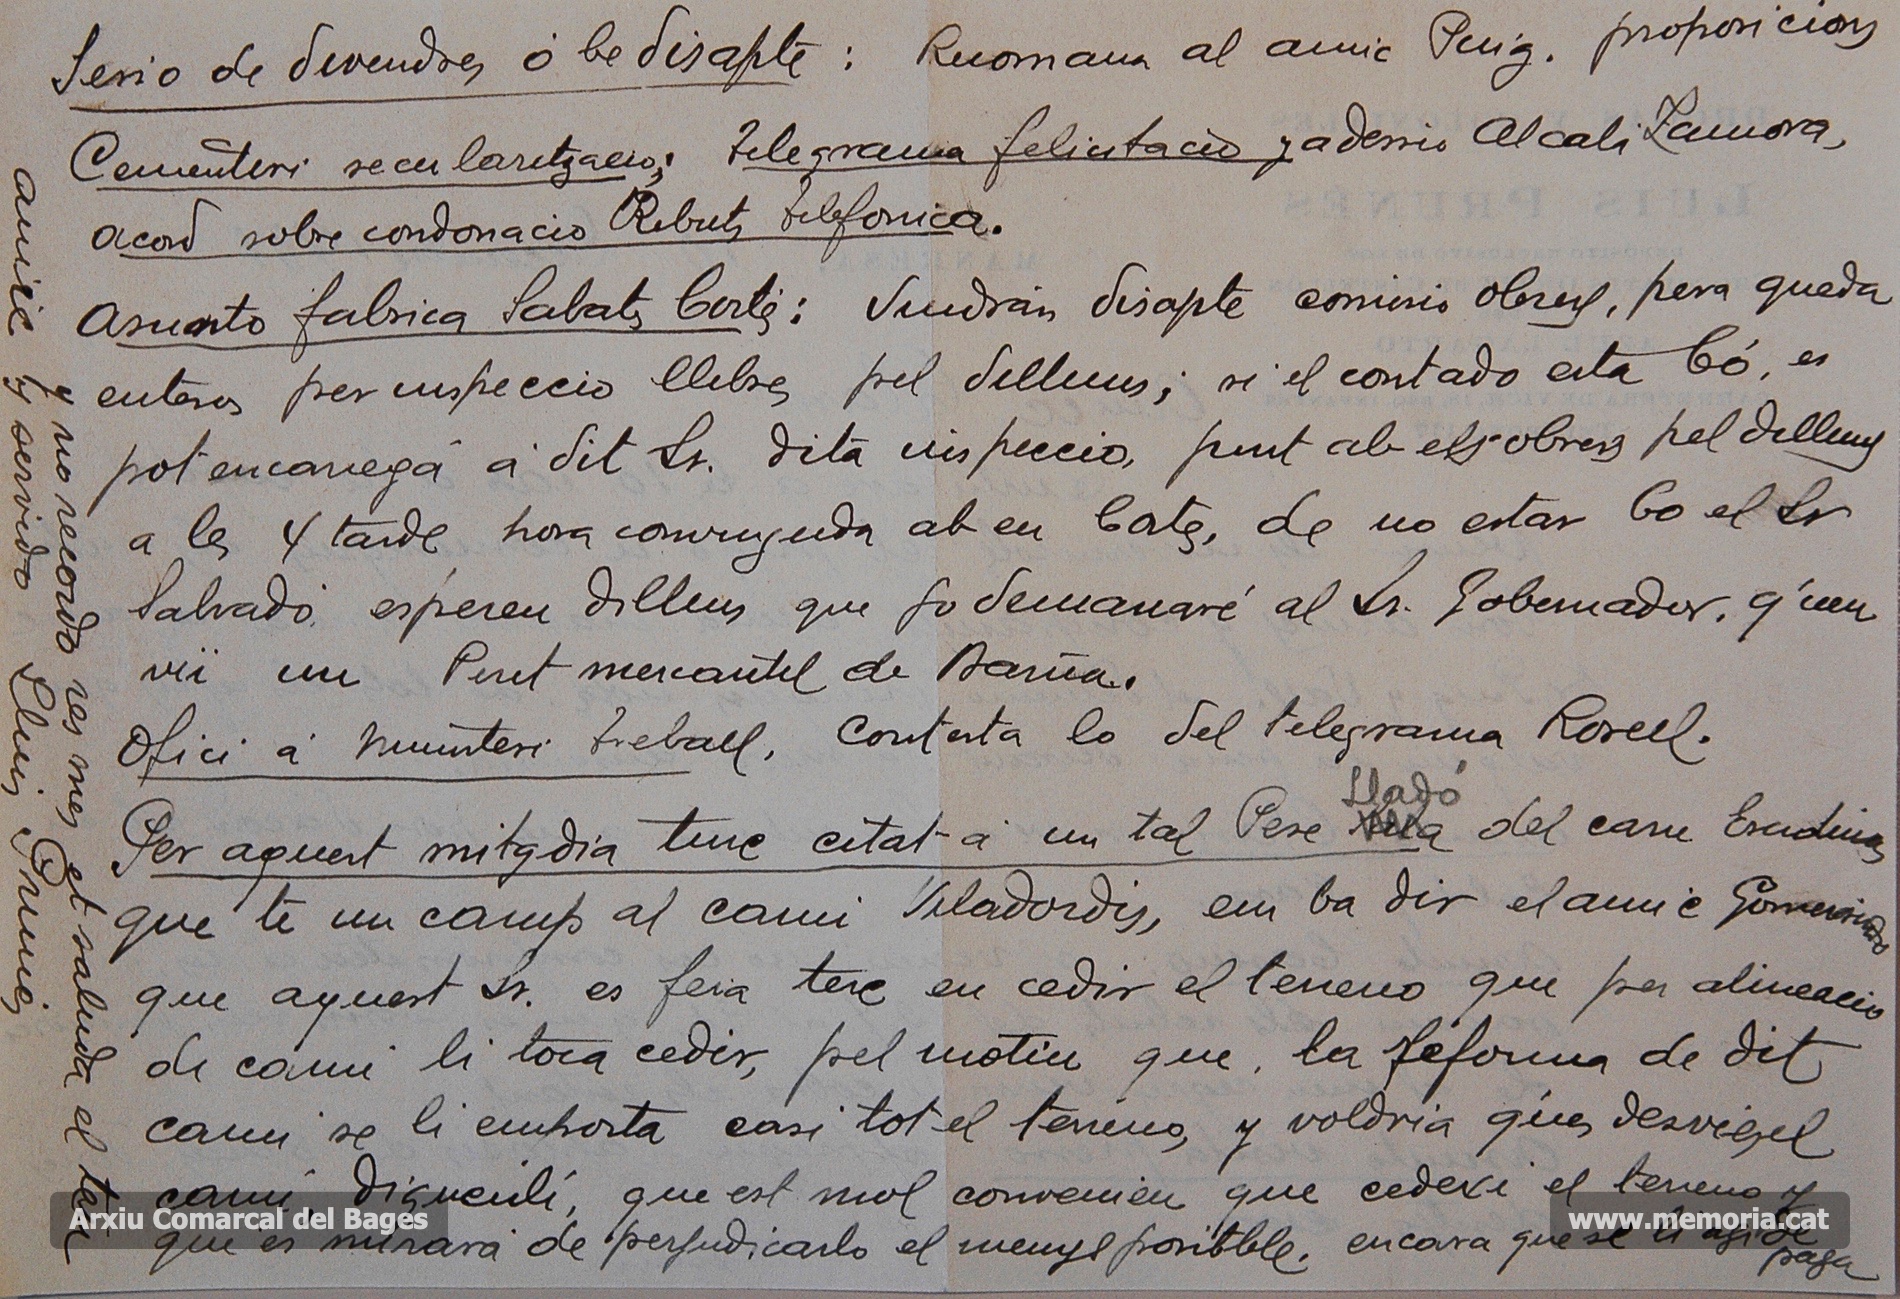 Sesio de divendres ó be disapte: Recomana al amic Puig. proposicions
Cementeri secularitzacio; telegrama felicitacio y adessio Alcalà Zamora,
acord sobre condonacio Rebuts telefonica.
Asunto fabrica Sabats Cortés: Vindrán disapte comisio obrers, pera queda
enteros per inspeccio llibres pel dilluns; si el contado esta bó, es
pot encarregá á dit Sr. dita inspeccio, junt ab els obrers pel dilluns
a les 4 tarde hora convinguda ab en Cortés, de no estar bo el Sr
Salvadó, espereu dilluns que jo demanaré al Sr. Gobernador, q'uen
vii un Perit mercantil de Barna.
Ofici á Ministeri treball, Contesta lo del telegrama Rosell.
Lladó
Per aquest mitgdia tinc citat á un tal Pere del carre Escudines
que te un camp al cami Viladordis, em ba dir el amic Gomersindo
que aquest Sr. es feia terc en cedir el terreno que per alineacio
de cami li toca cedir, pel motiu que, la reforma de dit
cami se li emporta casi tot el terreno, y voldria q'ues desviés el
cami, digueuli, que est mol convenien que cedexi el terreno y
que es mirará de perjudicarlo el menys posibble, encara que se li agi de
paga
y no recordo res mes et saluda el teu
amic y servido Lluis Prunés
Arxiu Comarcal del Bages
www.memoria.cat